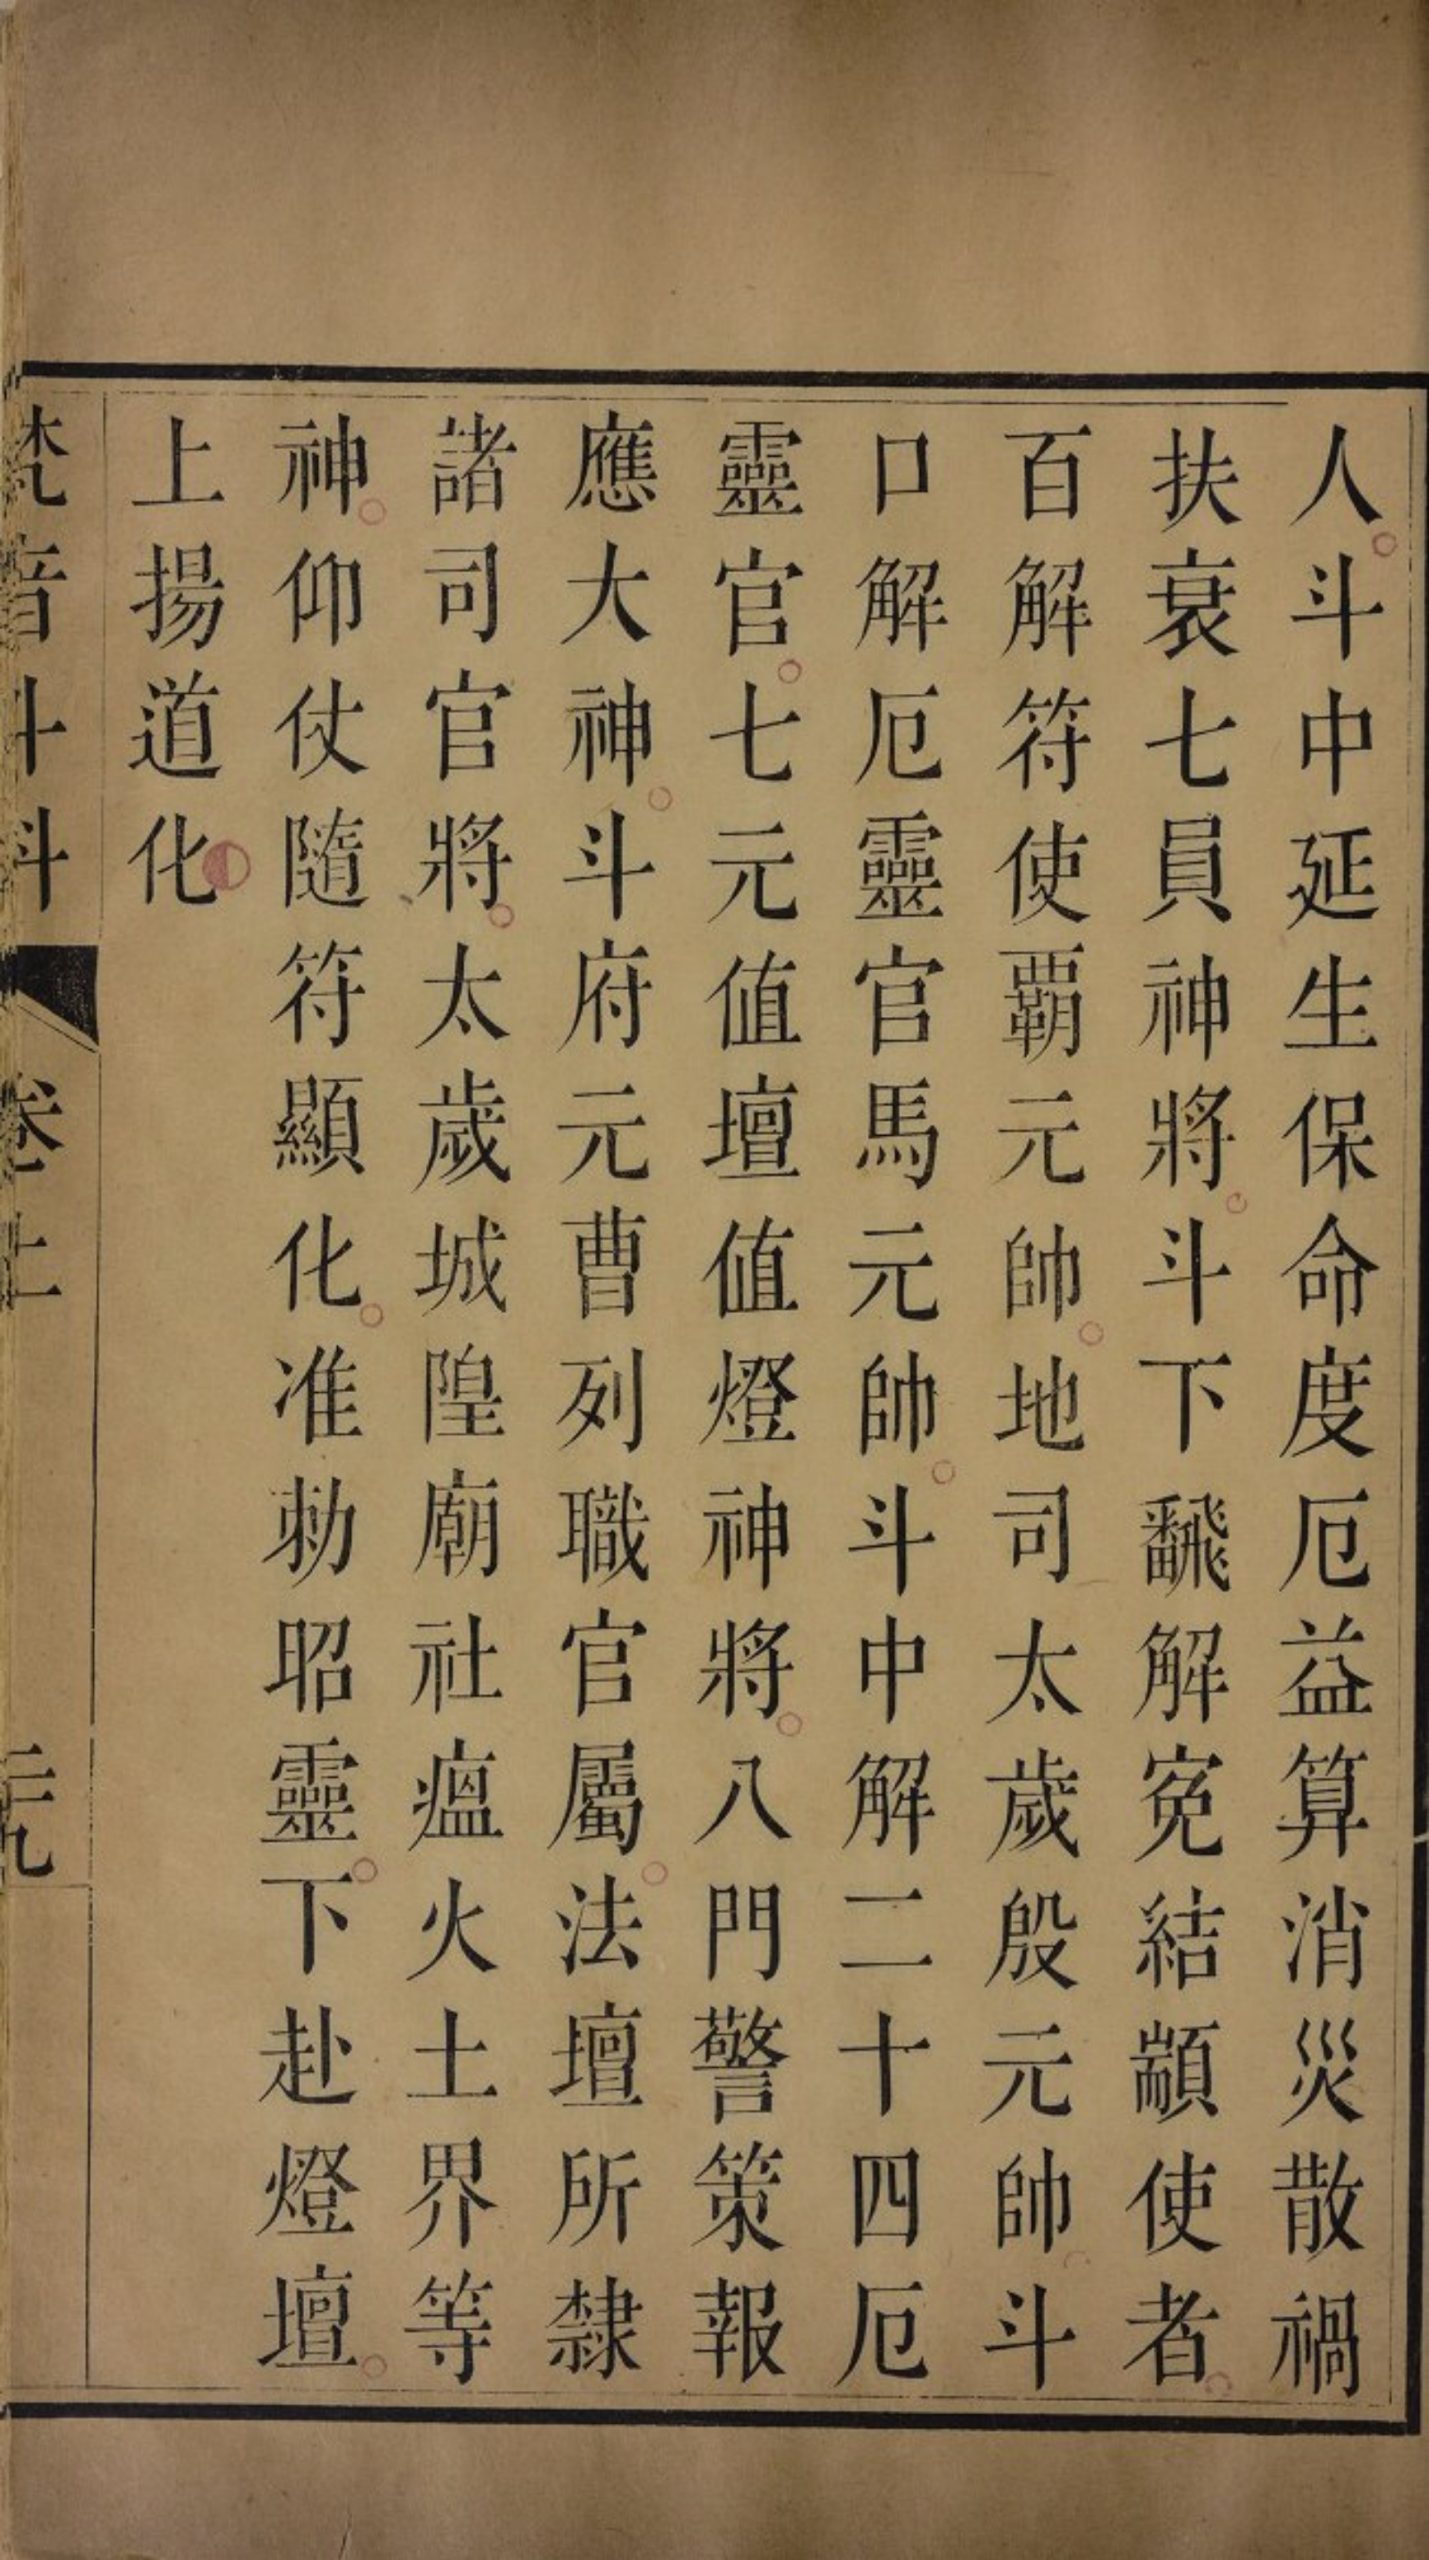 人斗中延生保命度厄益算消災散禍
扶衰七員神將斗下飜解寃結顓使者
百解符使覇元帥地司太歲殷元帥斗
口解厄靈官馬元帥斗中解二十四厄
靈官七元值壇值燈神將八門警策報
應大神斗府元曹列職官屬法壇所隸
諸司官將太歲城隍廟社瘟火土界等
神仰仗隨符顯化准勅昭靈下赴燈壇
上揚道化
梵音斗 卷上